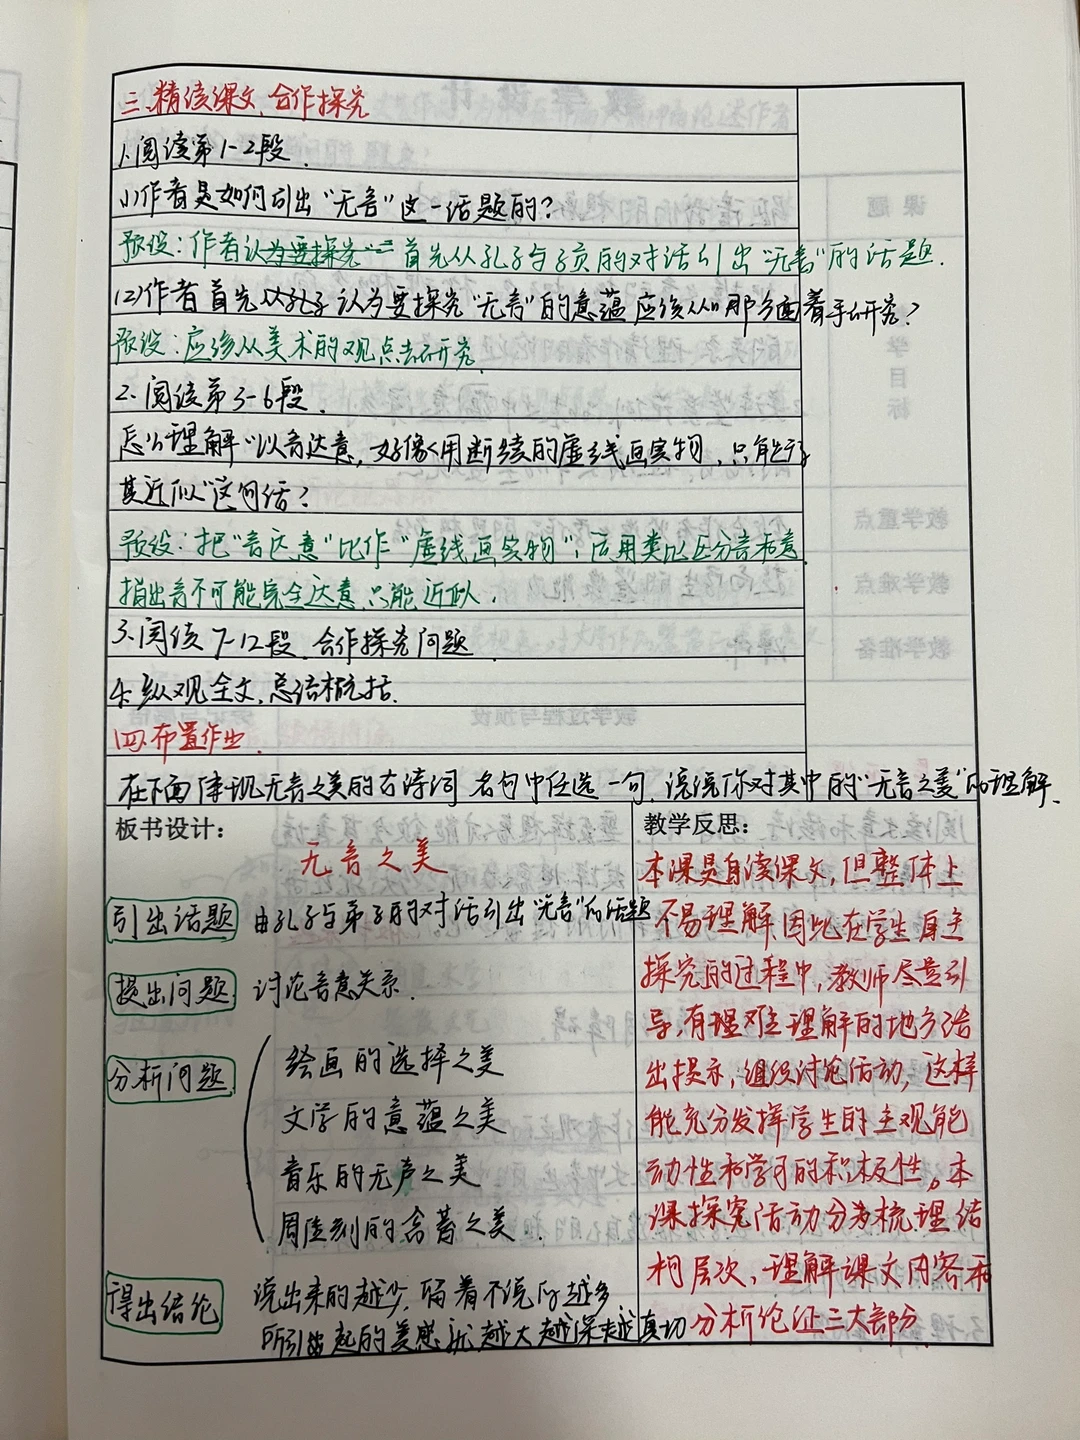 三、精读课文、合作探究
1.阅读第1-2段.
(1)作者是如何引出"无言"这一话题的?
预设:作者认为要探究"= 首先从孔子与子贡的对话引出"无言"的话题.
(2)作者首先从孔子认为要探究"无言"的意蕴应该从哪方面着手研究?
预设:应该从美术的观点去研究.
2.阅读第3-6段.
怎么理解"以言达意,好像用断续的虚线画实物,只能得
其近似"这句话?
预设:把"言达意"比作"虚线画实物",运用类比区分言和意
指出言不可能完全达意,只能近似.
3.阅读7-12段,合作探究问题
4.纵观全文,总结概括.
四.布置作业.
在下面体现无言之美的古诗词名句中任选一句,说说你对其中的"无言之美"的理解.
板书设计:
无言之美
引出话题 由孔子与弟子的对话引出"无言"的话题
提出问题 讨论言意关系.
分析问题
绘画的选择之美
文学的意蕴之美
音乐的无声之美
雕刻的含蓄之美.
得出结论 说出来的越少,留着不说的越多
所引起的美感就越大越深越真切
教学反思:
本课是自读课文,但整体上
不易理解,因此在学生自主
探究的过程中,教师尽量引
导,有理难理解的地方给
出提示,组织讨论活动,这样
能充分发挥学生的主观能
动性和学习的积极性。本
课探究活动分为梳理结
构层次,理解课文内容和
分析论证三大部分